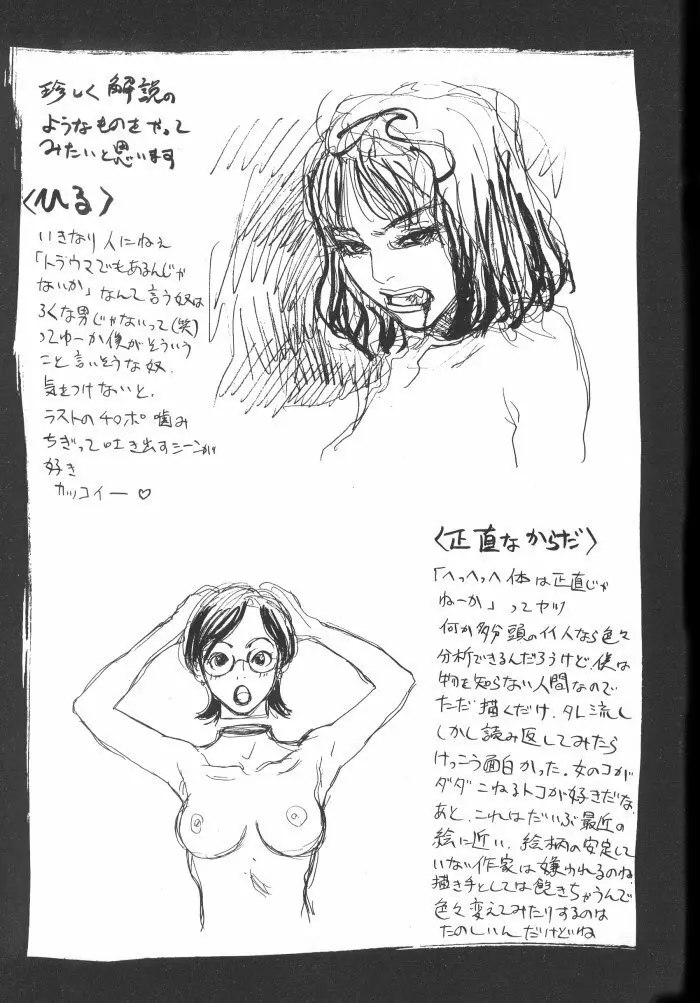 珍しく解説の
ようなものをやって
みたいと思います
〈ひる〉
いきなり人にねぇ
「トラウマでもあるんじゃ
ないか」なんて言う奴は
ろくな男じゃないって(笑)
ってゆーか僕がそういう
こと言いそうな奴.
気をつけないと.
ラストのチ○ポ噛み
ちぎって吐き出すシーンが
好き
カッコイー♡
〈正直なからだ〉
「へっへっへ体は正直じゃ
ねーか」ってヤツ
何か多分頭のイイ人なら色々
分析できるんだろうけど、僕は
物を知らない人間なので
ただ描くだけ.タレ流し
しかし読み返してみたら
けっこう面白かった.女のコが
ダダこねるトコが好きだな.
あと、これはだいぶ最近の
絵に近い.絵柄の安定して
いない作家は嫌われるのね.
描き手としては飽きちゃうんで
色々変えてみたりするのは
たのしいんだけどね